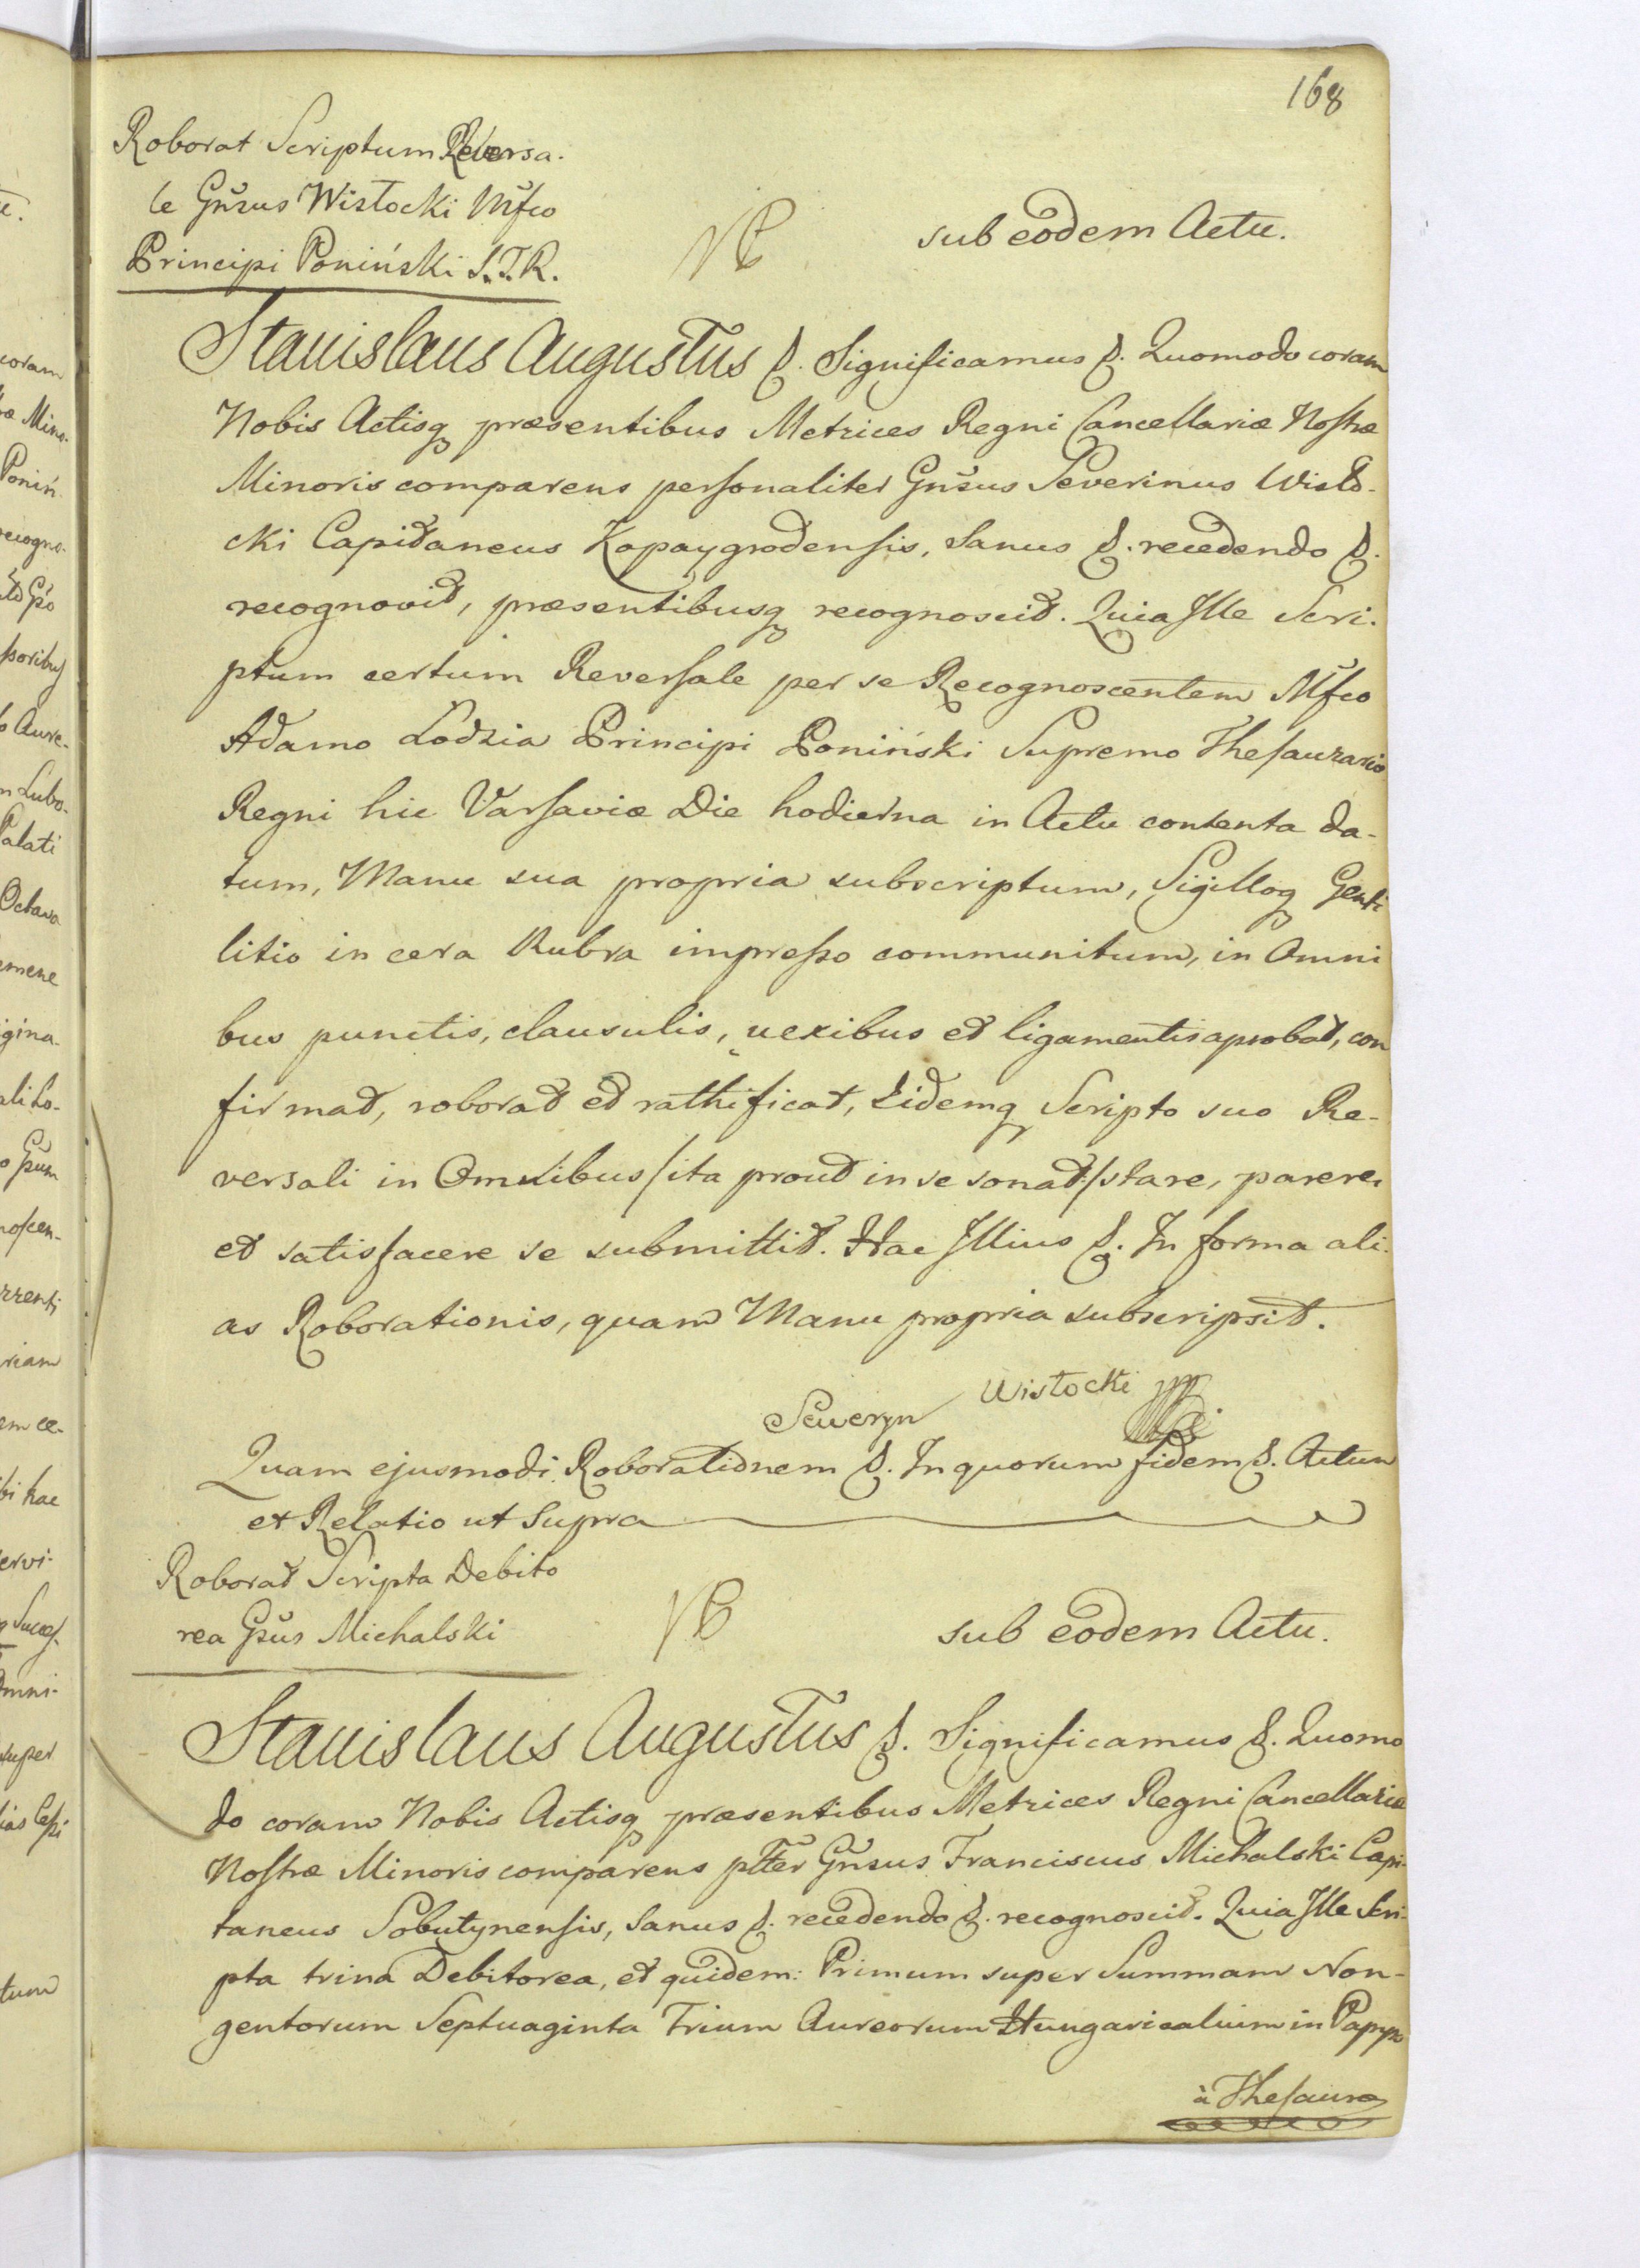 168
Roborat Scriptum Reversa-
le Gnsus Wisłocki Mfco
Principi Poniński S.T.R.
NB
sub eodem Actu.
Stanislaus Augustus &. Significamus &. Quomodo coram
Nobis Actisq præsentibus Metrices Regni Cancellariæ Nostræ
Minoris comparens personaliter Gnsus Severinus Wisło-
cki Capitaneus Kopaygrodensis, Sanus &. recedendo &.
recognovit, præsentibusq recognoscit. Quia Ille Scri-
ptum certum Reversale per se Recognoscentem Mfco
Adamo Lodzia Principi Poniński Supremo Thesaurario
Regni hic Varsaviæ Die hodierna in Actu contenta da-
tum, Manu sua propria subscriptum, Sigilloq Genti
litio in cera Rubra impresso communitum, in Omni
bus punctis, clausulis, nexibus et ligamentis aprobat, con
firmat, roborat et rathificat, Eidemq Scripto suo Re-
versali in Omnibus /ita prout in se sonat/ stare, parere,
et satisfacere se submittit. Hac Illius &. In forma ali-
as Roborationis, quam Manu propria subscripsit.
Seweryn Wisłocki
Quam ejusmodi Roborationem &. In quorum fidem &. Actum
et Relatio ut Supra
Roborat Scripta Debito
rea Gsus Michalski
NB
sub eodem Actu.
Stanislaus Augustus &. Significamus &. Quomo
do coram Nobis Actisq præsentibus Metrices Regni Cancellariæ
Nostræ Minoris comparens plter Gnsus Franciscus Michalski Capi-
taneus Sobutynensis, Sanus &. recedendo &. recognoscit. Quia Ille Scri-
pta trina Debitorea, et quidem: Primum super Summam Non-
gentorum Septuaginta Trium Aureorum Hungaricalium in Pappo
à Thesauro